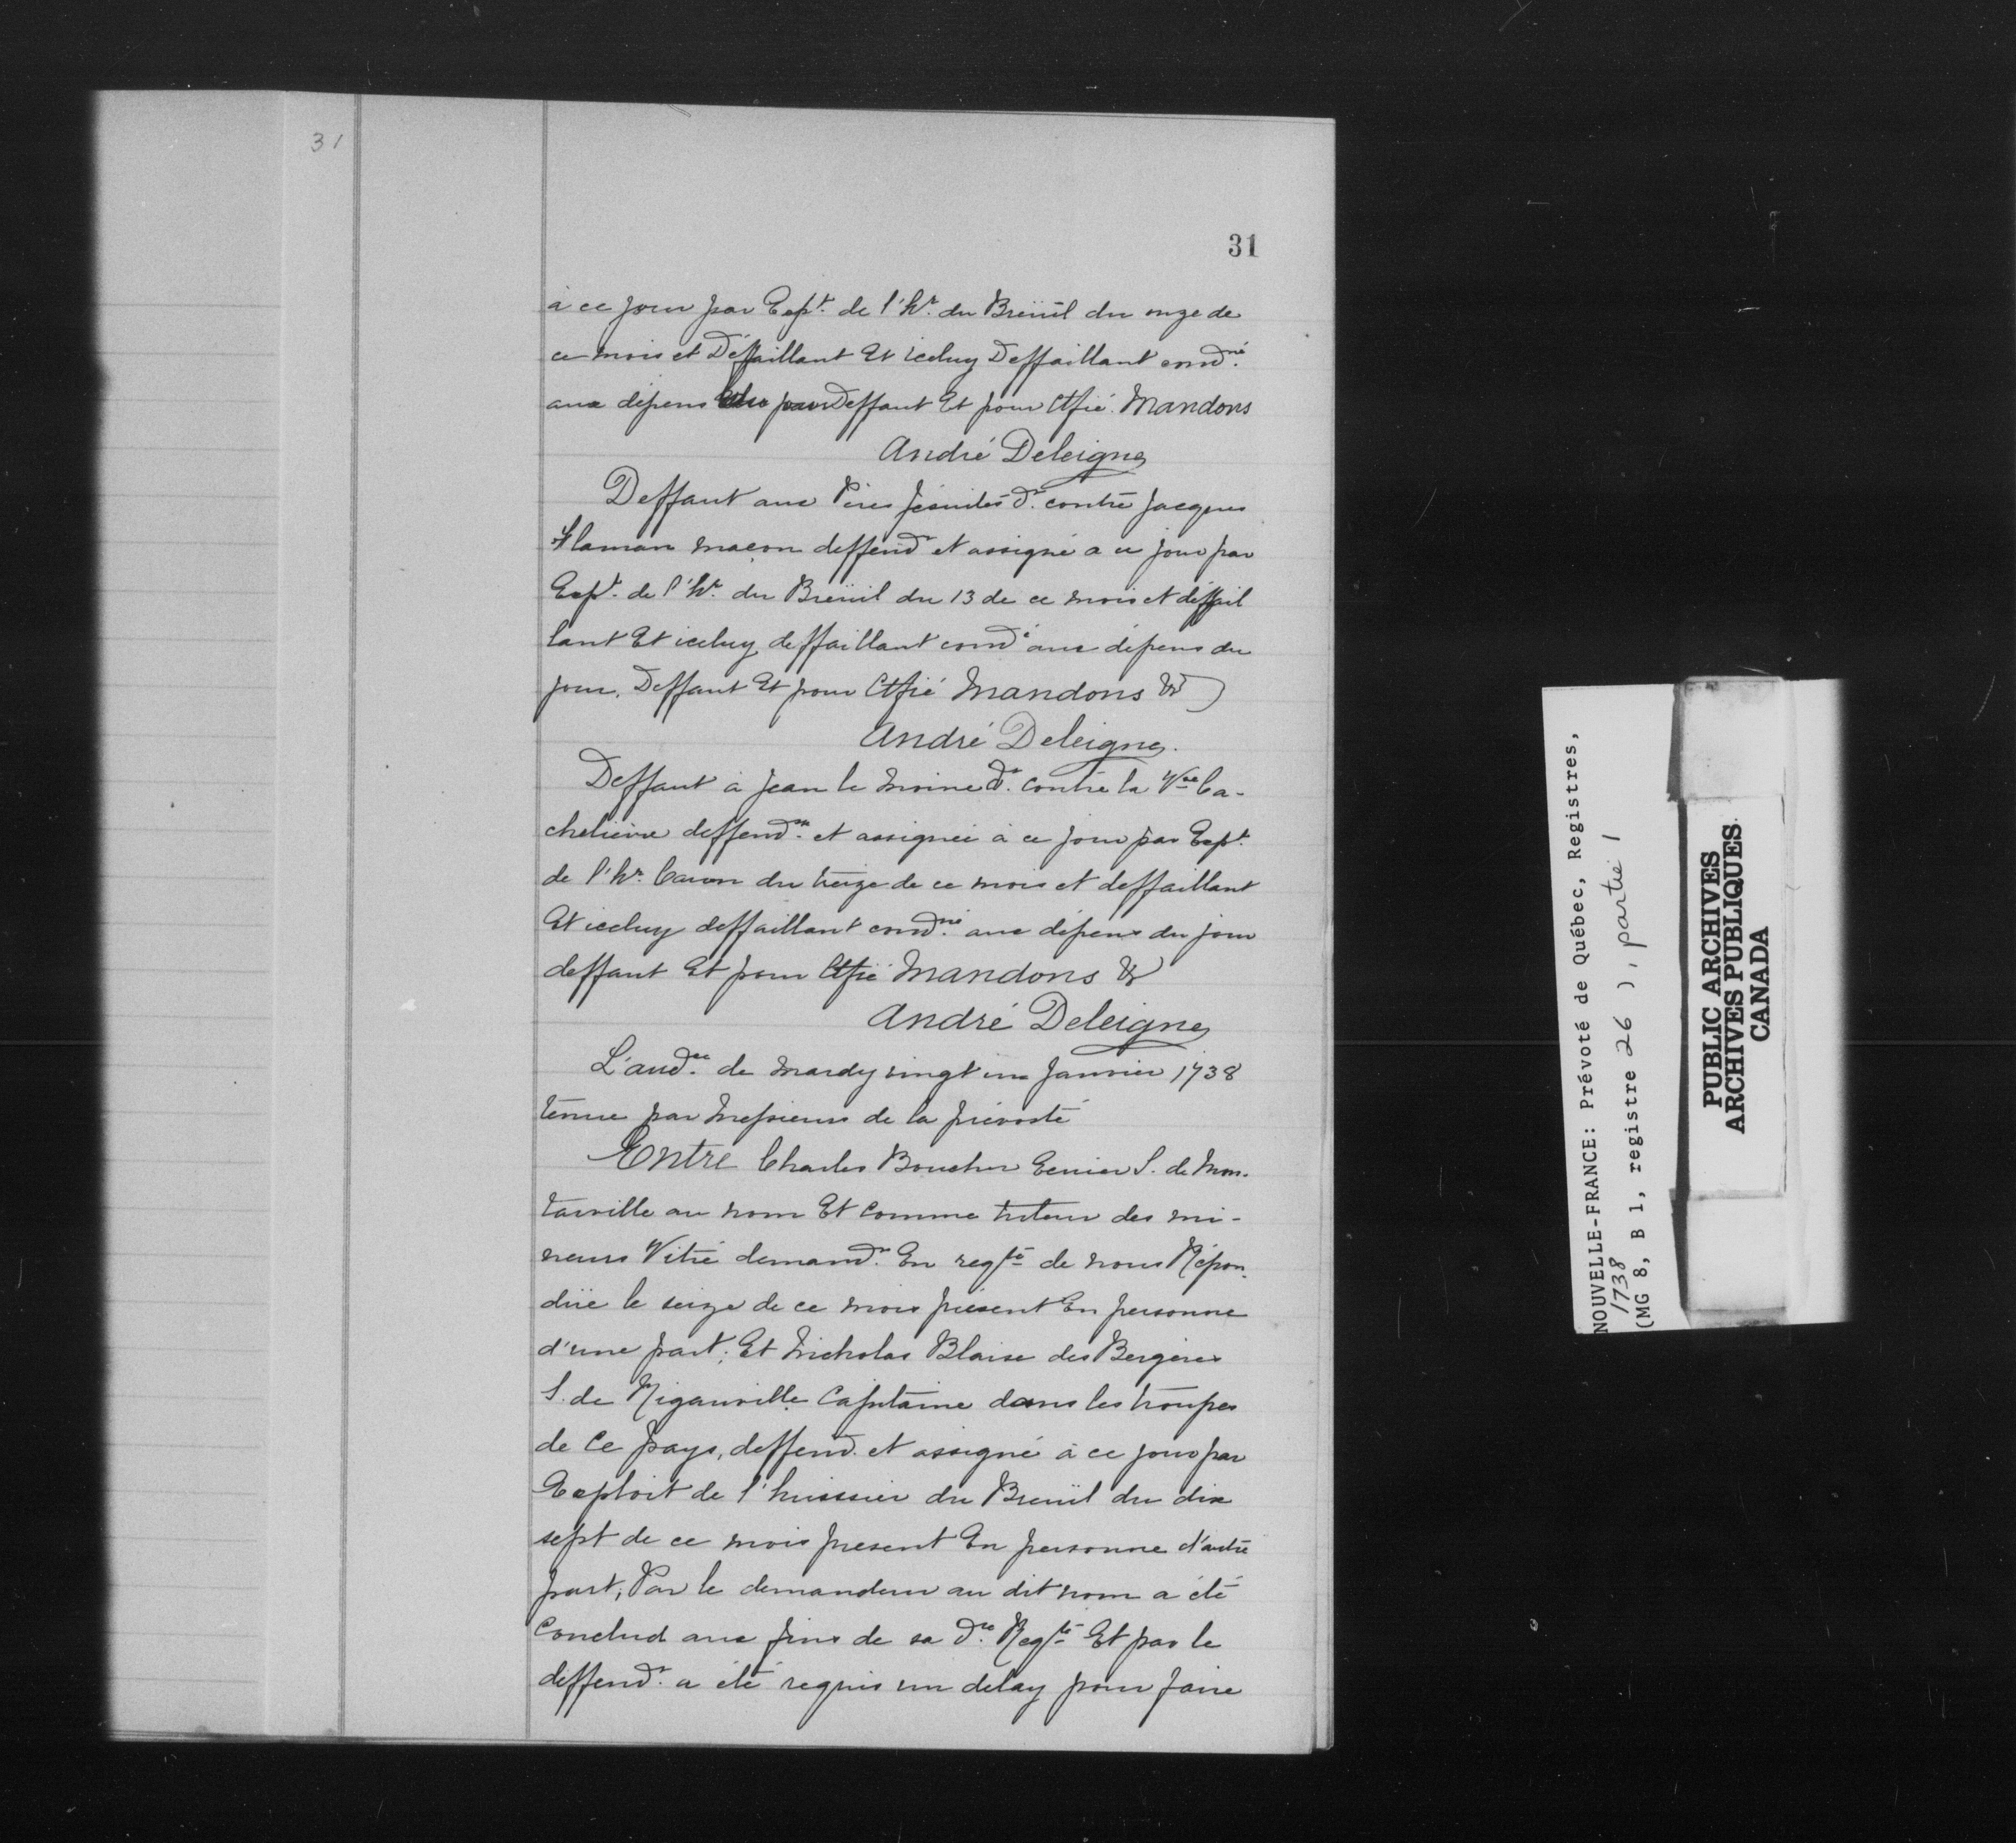 31
31
à ce jour par Expt. de l'hr. du Breüil du onze de
ce mois et Déffaillant Et iceluy Deffaillant condné.
aux dépens Deffaut Et pour Etfié. Mandons
André Deleigne
Deffaut aux Pères Jésuites dr. contre Jacques
Flaman maçon deffendr et assigné a ce jour par
Expt. de l'hr. du Breüil du 13 de ce mois et déffail
lant Et iceluy deffaillant condé aux dépens du
jour. Deffaut Et pour Etfié Mandons &
André Deleigne.
Deffaut à Jean le moine dr. contre la Vve Ba-
chelière deffendse. et assignée à ce jour par Expt.
de l'hr. Caron du treize de ce mois et deffaillant
Et iceluy deffaillant condné. aux dépens du jour
deffaut Et pour Etfié Mandons &
André Deleigne
L'audce. de mardy vingt un Janvier 1738
tenue par Messieurs de la prévosté
Entre Charles Boucher Ecuier S. de Mon-
tarville au nom Et comme tuteur des mi-
neurs Vitré demandr. En reqte de nous Répon-
düe le seize de ce mois présent En personne
d'une part; Et Nicholas Blaise des Bergères
S. de Rigauville Capitaine dans les troupes
de Ce pays, deffend. et assigné à ce jour par
Exploit de l'huissier du Breüil du dix
sept de ce mois present En personne d'autre
part; Par le demandeur au dit nom a été
Conclud aux fins de sa de. Reqte Et par le
deffendr. a été requis un delay pour faire
NOUVELLE-FRANCE: Prévoté de Québec, Registres,
1738
(MG 8, B 1, registre 26 ), partie 1
PUBLIC ARCHIVES
ARCHIVES PUBLIQUES
CANADA